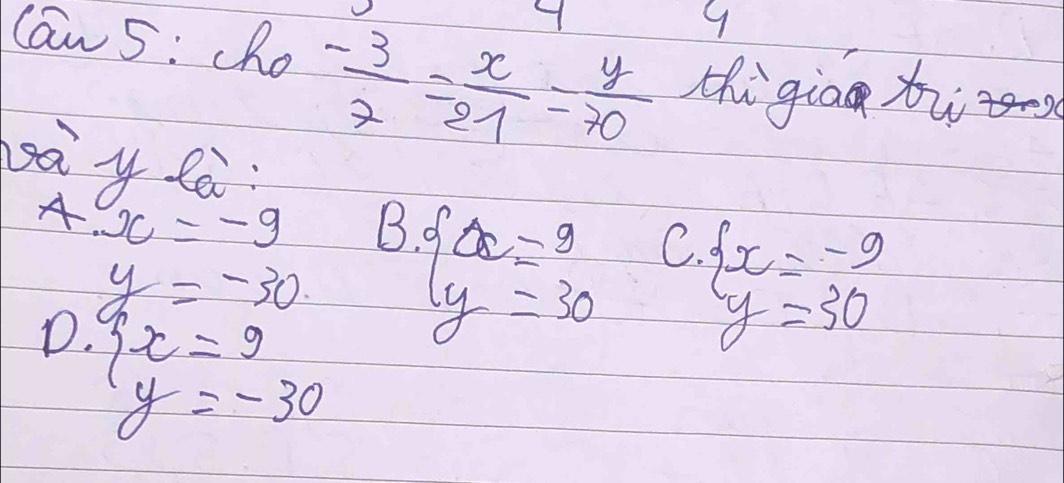 Câu 5: cho -3/7 = x/21 = y/70 thì giá trị x
và y là:
A. x = -9 B. { x = 9 C. { x = -9
y = -30. y = 30 y = 30
D. { x = 9
y = -30